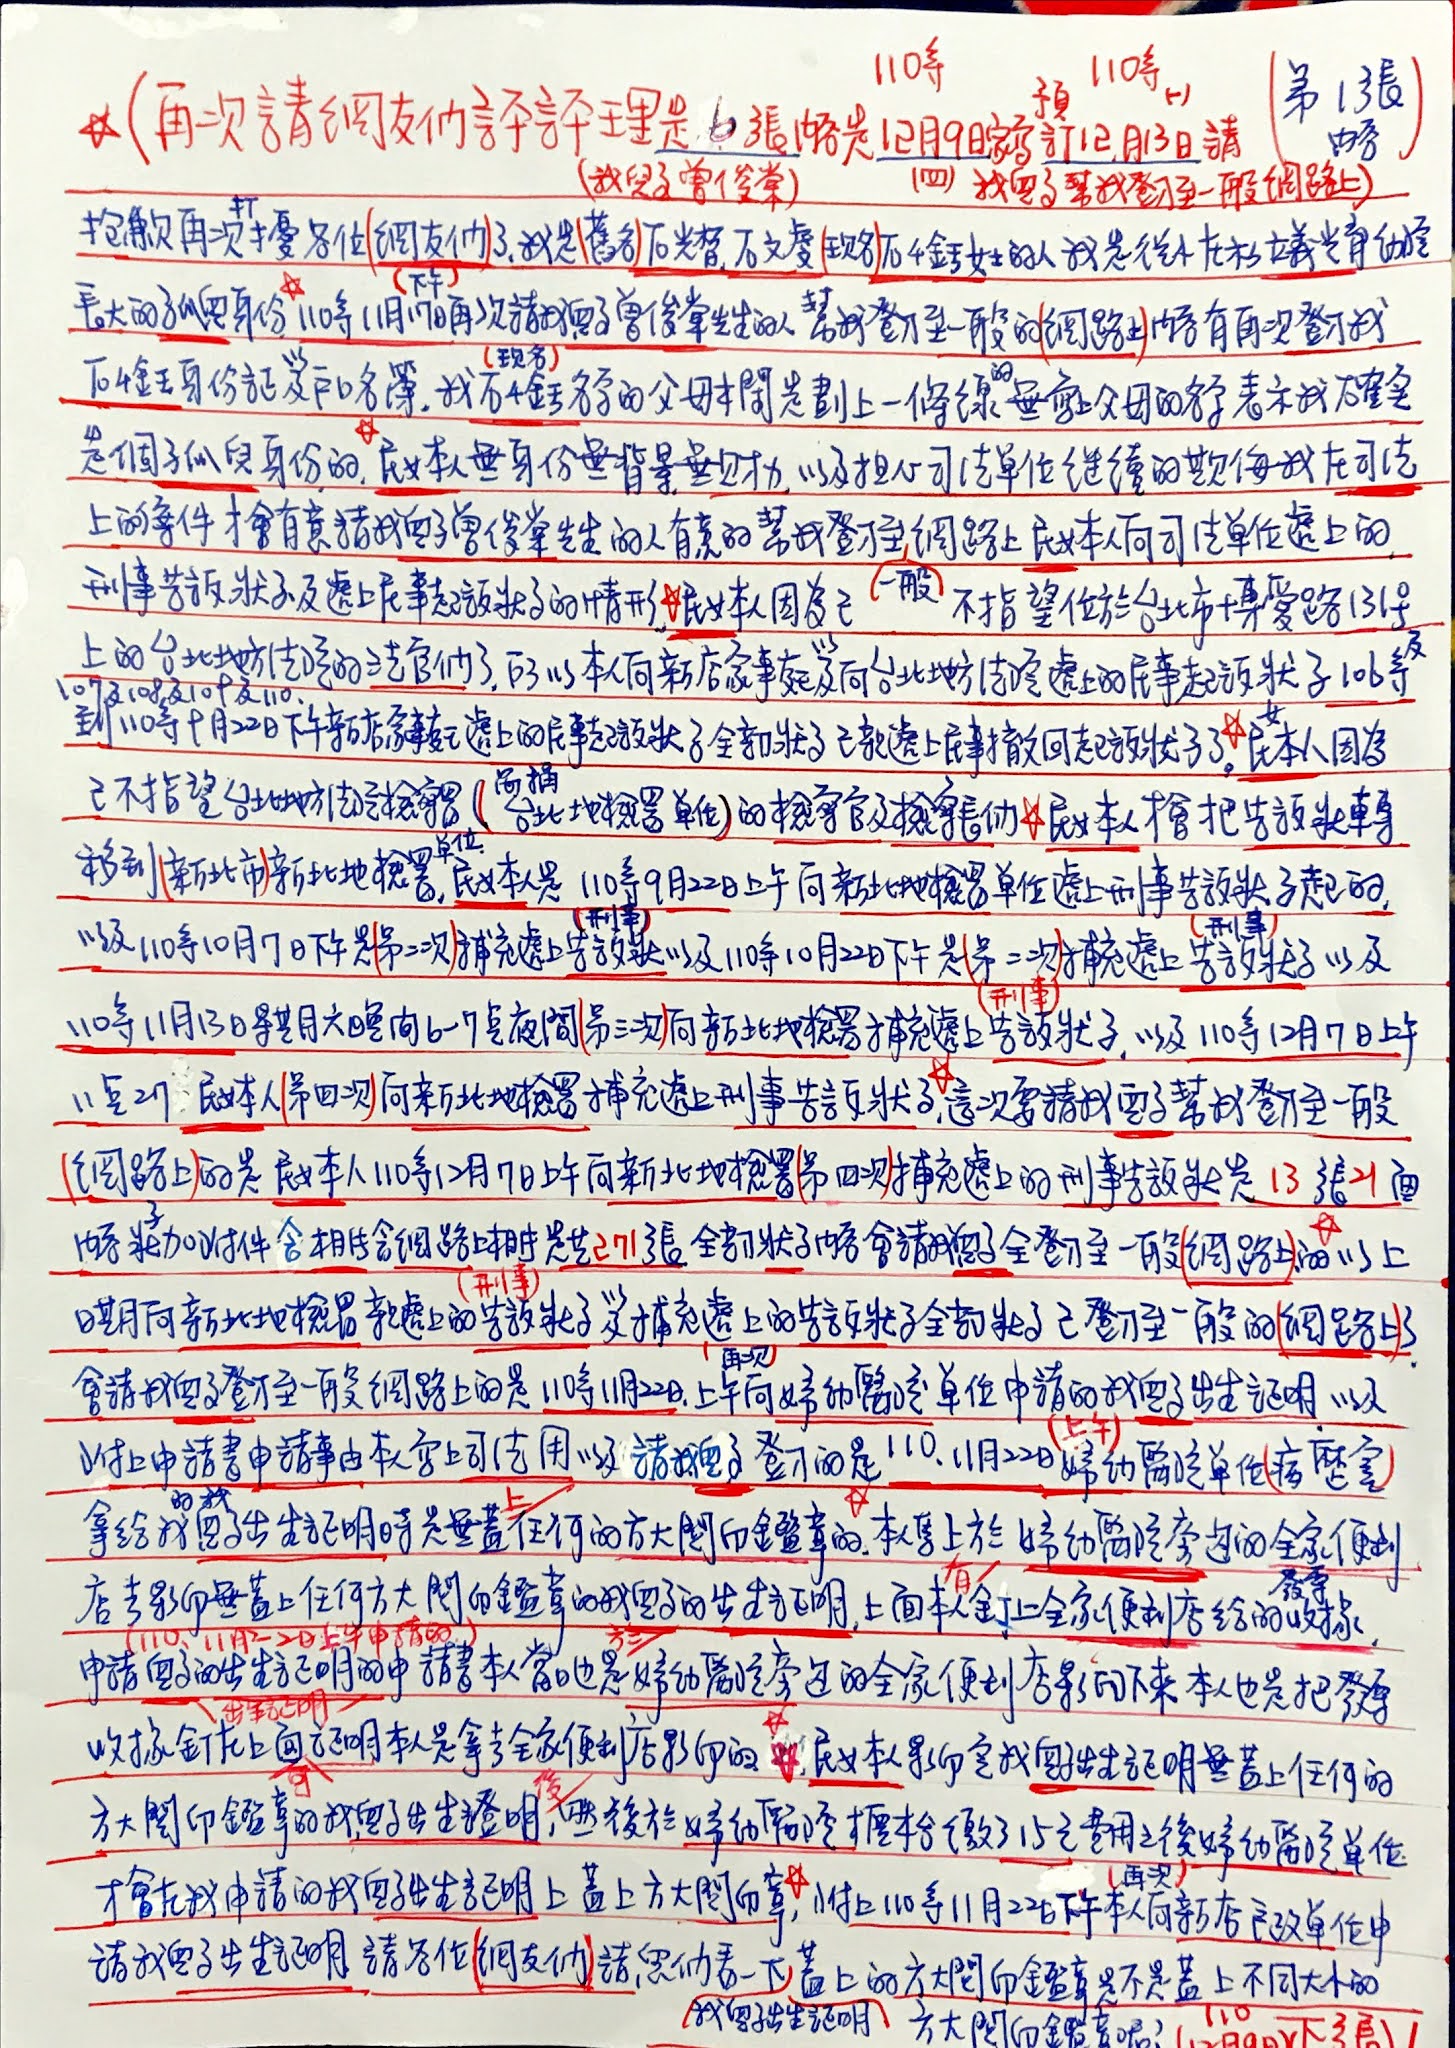 110年 110年
☆(再次請網友們評評理是6張內容是12月9日寫預訂12月13日請 (第1張內容)
(我兒子曾俊棠) (四) 我兒子幫我登才至一般網路上)
抱歉再次打擾各位(網友們)了,我是(舊名)石光督,石文慶(現名)石4金玉女士的人我是從小在私立義光育幼院
長大的孤兒身份,☆110年11月17日(下午)再次請我兒子曾俊棠先生的人幫我登才至一般的(網路上)內容有再次登才我
石4金玉身份証以及戶口名簿,我(現名)石4金玉名字的父母本閑是劃上一條線的無寫上父母的名字表示我石確實
是個孤兒身份的,☆民女本人無身份無背景無財力,以及担心司法單位继續的欺侮我在司法
上的案件才會有意請我兒子曾俊棠先生的人有意的幫我登才至一般網路上民女本人向司法單位遞上的
刑事告訴狀子及遞上民事起訴狀子的情形,☆民女本人因為已不指望位於台北市博愛路131号
上的台北地方法院的法官們了,所以本人向新店家事庭以及向台北地方法院遞上的民事起訴狀子106年及
107及108及109及110.
到110年十月22日下午新店家事庭遞上的民事起訴狀子全部狀子已親遞上民事撤回起訴狀子了。☆民女本人因為
已不指望台北地方法院檢察署(台北地檢署單位)的檢察官及檢察長們☆民女本人才會把告訴狀轉
移到(新北市)新北地檢署單位,民女本人是110年9月22日上午向新北地檢署單位遞上刑事告訴狀子起的,
以及110年10月7日下午是(第二次)補充遞上(刑事)告訴狀以及110年10月22日下午是(第二次)補充遞上(刑事)告訴狀子以及
110年11月13日星其月六日晚向6-7点夜間(第三次)向新北地檢署補充遞上(刑事)告訴狀子,以及110年12月7日上午
11点27民女本人(第四次)向新北地檢署補充遞上刑事告訴狀子,☆這次要請我兒子幫我登才至一般
(網路上)的是民女本人110年12月7日上午向新北地檢署(第四次)補充遞上的刑事告訴狀是13張21面
內容狀子加附件含相片含網路上相片是共271張全部狀子內容會請我兒子全登才至一般(網路上)的☆以上
日期向新北地檢署親遞上的(刑事)告訴狀子以及補充遞上的告訴狀子全部狀子已登才至一般的(網路上)了
會請我兒子登才至一般網路上的是110年11月22日.上午(再次)向婦幼醫院單位申請的我兒子出生証明以及
附上申請書申請事由本人寫上司法用以及請我兒子登才的是110.11月22日(上午)婦幼醫院單位(病歷室)
拿給我的我兒子出生証明時是無蓋上任何的方大関印鑑章的.☆本人馬上於婦幼醫院旁边的全家便利
店去影印無蓋上任何方大関印鑑章的我兒子的出生証明,上面本人有釘上全家便利店給的發票收據,
(110.11月22日上午申請的)
申請兒子的出生証明的申請書本人當日也是婦幼醫院旁边的全家便利店影印下來本人也是把發票
收據釘在上面出生証明証明本人是拿去全家便利店影印的☆,民女本人影印完我兒子出生証明無蓋上任何的
方大関印鑑章的我兒子出生證明後,然後於婦幼醫院櫃枱台繳了15元費用之後婦幼醫院單位
才會在我申請的我兒子出生証明上蓋上方大関印章,☆附上110年11月22日下午(再次)本人向新店戶政單位申
請我兒子出生証明請各位(網友們)請,您們看一下蓋上的方大関印鑑章是不是蓋上不同大小的
(我兒子出生証明) 方大関印鑑章呢?(110 12月9日)(下3張)